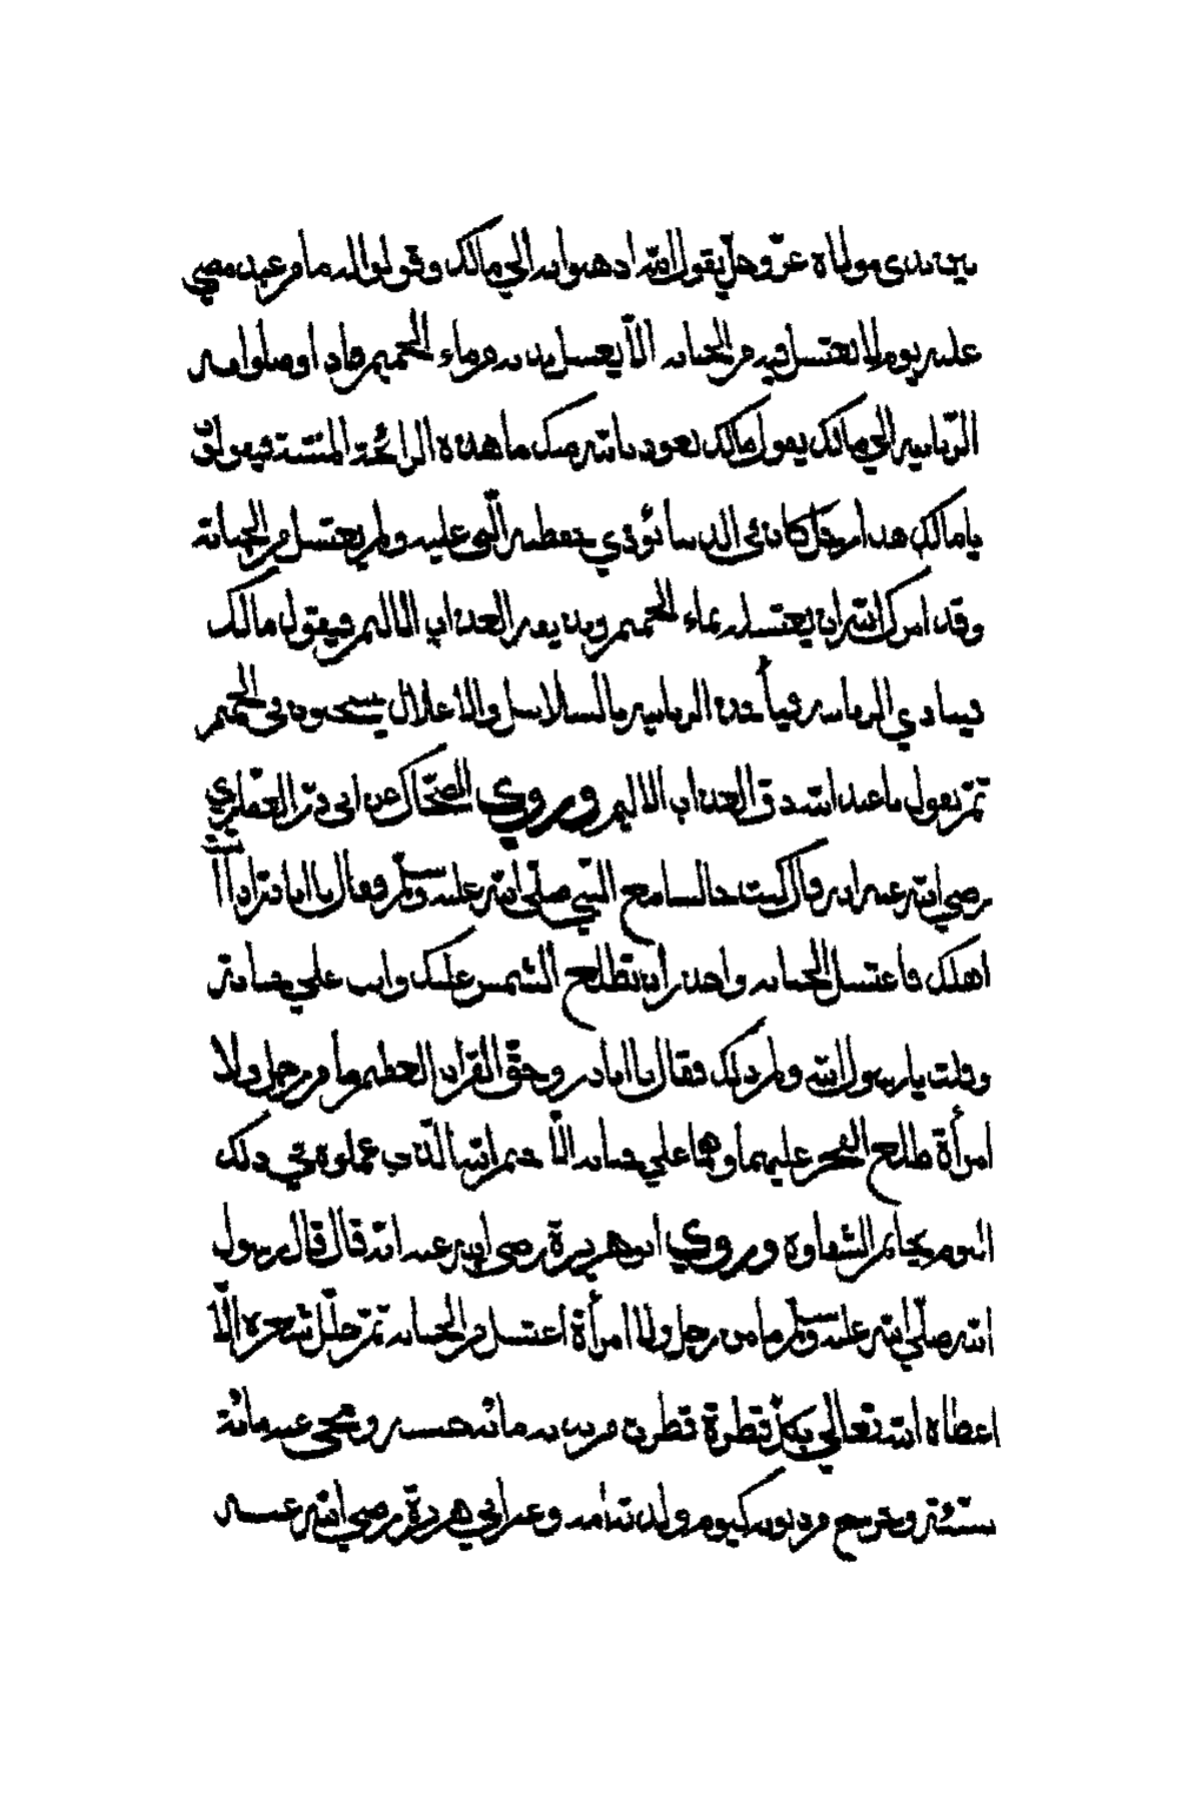 بين يدي مولاه عز وجل يقول الله اذهبوا به الي مالك وقولوا له ما من عبد مضي
عليه يوم لا يغتسل فيه من الجنابه الا يغسل بدنه من ماء الحميم فاذا وصلوا به
الزبانيه الي مالك يقول مالك نعوذ بالله منك ما هذه الرائحة المنتنة فيقولون
يا مالك هذا رجل كان في الدنيا يؤذي حفظه التي عليه ولم يغتسل من الجنابة
وقد امرك الله ان يغتسله بماء الحميم ويذيقه العذاب الاليم فيقول مالك
فينادي الزبانيه فيأخذه الزبانيه بالسلاسل والاغلال يسحبوه في الحميم
ثم يقول يا عبد الله ذق العذاب الاليم وروي الضحاك عن ابي ذر الغفاري
رضي الله عنه انه قال كنت جالسا مع النبي صلي الله عليه وسلم فقال يا ابا ذر اذا اتيت
اهلك فاغتسل الجنابه واحذر ان تطلع الشمس عليك وانت علي جنابة
وقلت يا رسول الله ولم ذلك فقال يا ابا ذر وحق القران العظيم ما من رجل ولا
امرأة طلع الفجر عليهما وهما علي جنابه الا ختم الله بالذي عملوه في ذلك
اليوم بخاتم الشقاوة وروي ابو هريرة رضي الله عنه انه قال قال رسول
الله صلي الله عليه وسلم ما من رجل ولا امرأة اغتسل من الجنابه ثم خلل شعره الا
اعطاه الله تعالي بكل قطرة قطرت من بدنه مائة حسنه ومحي عنه مائة
سيئة وخرج من ذنوبه كيوم ولدته امه وعن ابي هريرة رضي الله عنه